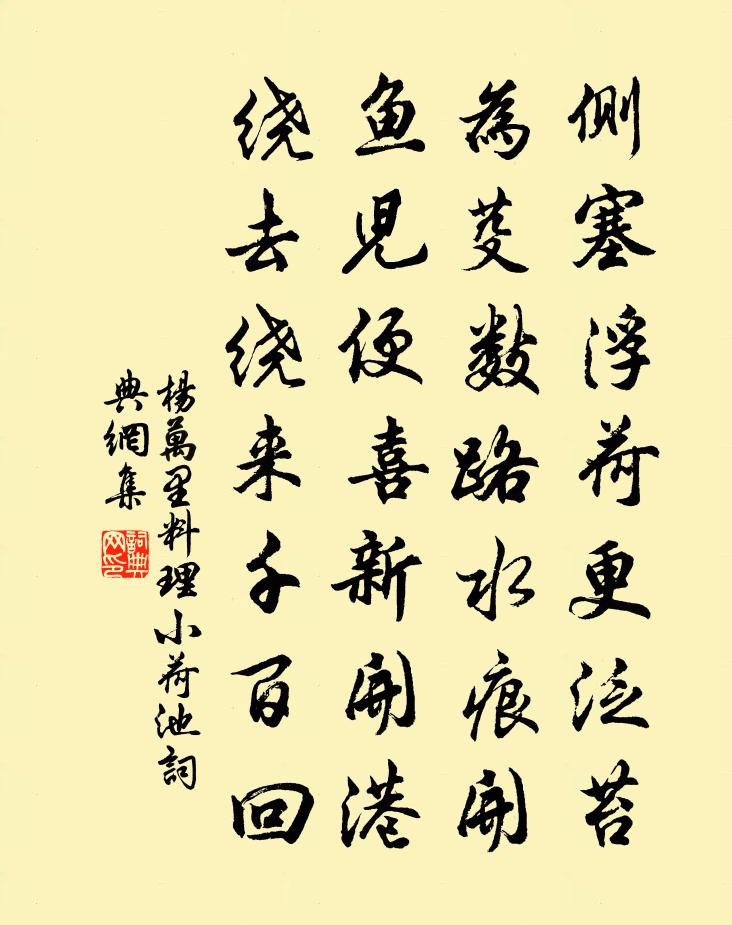 侧塞浮荷更泛苔
為芟数路水痕開
鱼児便喜新開港
绕去绕来千百回
楊萬里料理小荷池詞
典網集
詞典
网印